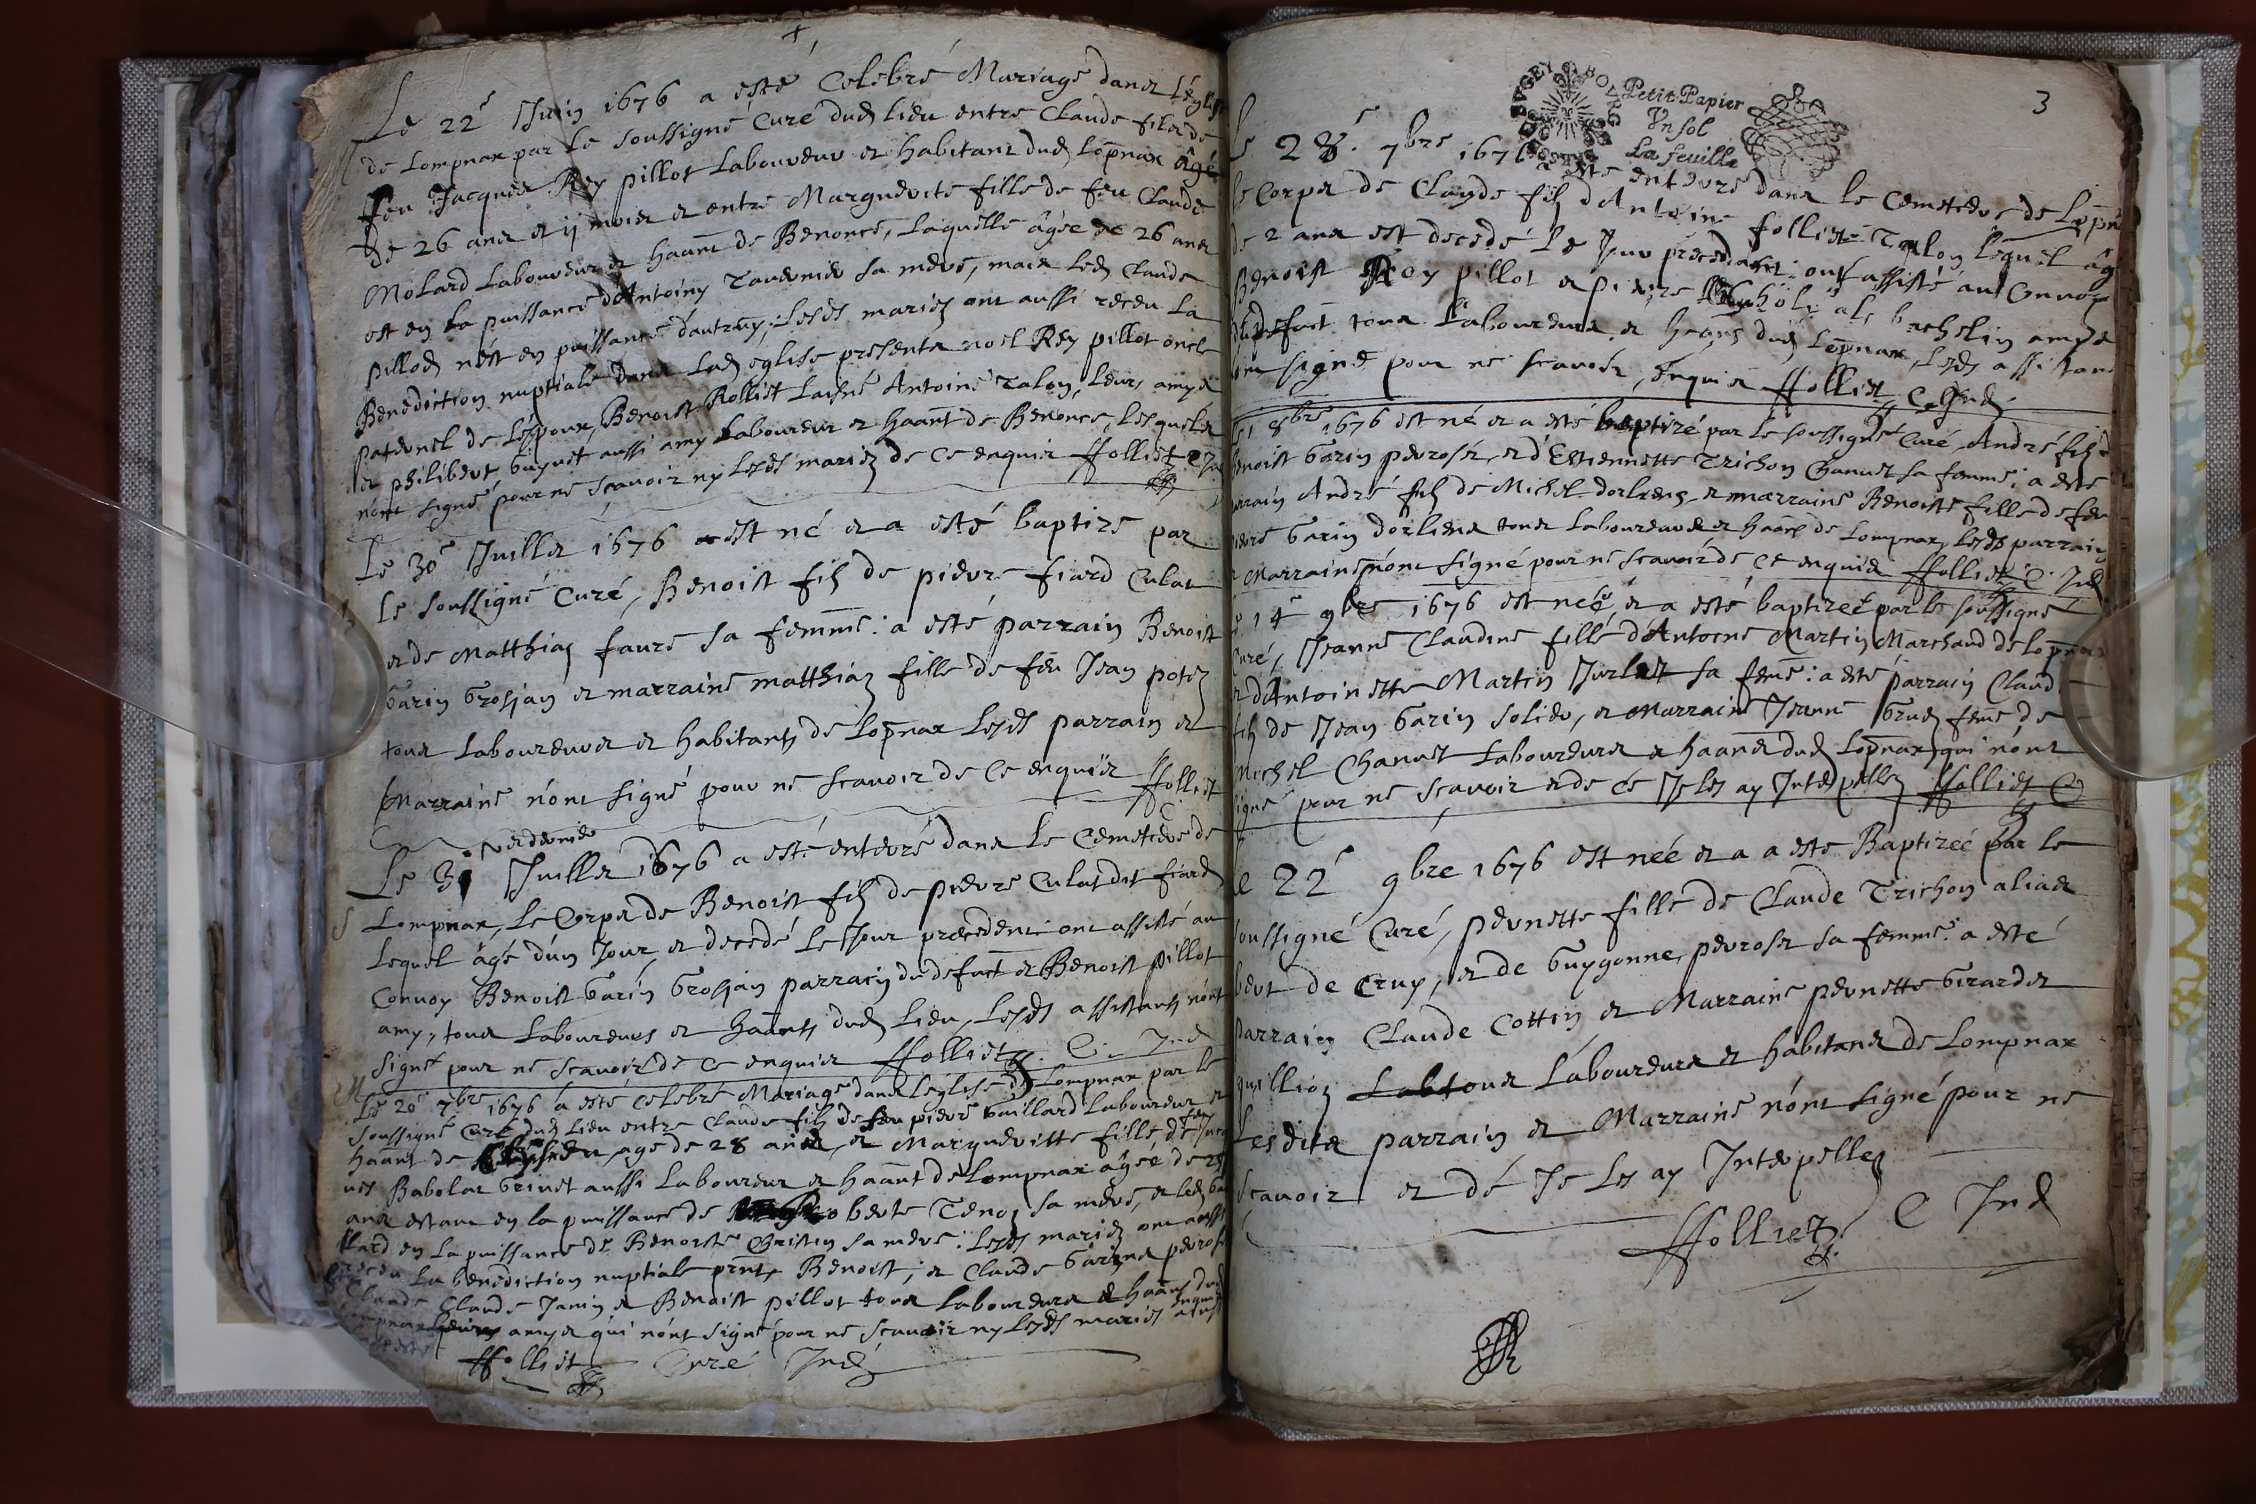 Le 22e Juin 1676 a esté Celebré Mariage dans L'église
de Lompnax par Le soussigné Curé dud Lieu entre Claude fils de
feu Jacques Rey pillot Laboureur et habitant dud Lopnax âgé
de 26 ans et ij mois et entre Marguerite fille de feu Claude
Molard Laboureur et haant de Benonce, Laquelle âgée de 26 ans
est en la puissance d'Antoiny Tavernier sa mere, mais Led Claude
pillod n'est en puissance d'autruy; Lesds mariez ont aussi receu La
Benediction nuptiale dans Lad eglise presents noel Rey pillot oncle
paternel de L'espoux, Benoist Rolliet Laisné Antoine Talon, Leurs amys
et philibert Guyuet aussi amy Laboureur et haant de Benonce, Lesquels
n'ont signé pour ne scavoir ny Lesds mariez de ce enquis ffolliet C Jnd
Le 30e Juillet 1676 est né et a esté baptizé par
Le soussigné Curé, Benoist fils de pierre fiard Culat
et de Matthiaz faure sa femme: a esté parrain Benoist
Garin Grosjan et marraine matthiaz fille de feu Jean potez
tous Laboureurs et habitants de Lopnax Lesds parrain et
Marraine n'ont signé pour ne scavoir de Ce enquis ffolliet
C
et dernier
Le 31 Juillet 1676 a esté enterré dans Le Cemetiere de
S Lompnax, Le Corps de Benoist fils de pierre Culat dit fiard
Lequel âgé d'un Jour, et decedé Le Jour precedent: ont assisté au
Convoy Benoist Garin Grosjan parrain du defunct et Benoist pillot
amy, tous Laboureurs et haants dud Lieu, Lesds assistants n'ont
signé pour ne scavoir de ce enquis ffolliet C. Jnd
M Le 20e 7bre 1676 a esté Celebré Mariage dans L'eglise de Lompnax par le
soussigné Curé dud Lieu entre Claude fils de feu pierre Gaillard Laboureur et
haant de agé de 28 ans, et Marguevitte fille de feu
Babolat Grinet aussi Laboureur et haant de Lompnax âgée de 25
ans estant en la puissance de berte Tenoz sa mere, et Led Gai
llard en La puissance de Benoiste Christin sa mere: Lesds mariez ont aussi
receu La benediction nuptiale pnts Benoist, et Claude Garins perroset
Claude Claude Janin et Benoist pillot tous Laboureurs et haants dud
Lompnax amys qui n'ont signé pour ne scavoir ny Lesds mariez
ffolliet Curé Jnd
3
BUGEY BOURG
Petit Papier
Un sol
La feuille
Le 28e 7bre 1676 a esté enterré dans le Cemetiere de Lopn
le Corps de Claude fils d'Antoine folliet Talon lequel âg
de 2 ans est decedé Le Jour precedent: ont assisté au Convoy
Benoist Rey pillot et pierre als bachelin amys
du defunct tous Laboureurs et haans dud Lopnax, Lesds assistans
n'ont signé pour ne scavoir, enquis ffolliet C. Jnd
Le 1 8bre 1676 est né et a esté baptizé par le soussigné Curé, André fils de
Benoist Garin perroset, et d'Estiennette Trichon Chanut sa femme: a esté
parrain André fils de Michel dorliens et marraine Benoiste fille de feu
pierre Garin dorliens tous Laboureurs et haans de Lompnax Lesds parrain
et Marraine n'ont signé pour ne scavoir de Ce enquis ffolliet C. Jnd
Le 14e 9bre 1676 est née et a esté baptizeé par le soussigné
Curé, Jeanne Claudine fille d'Antoine Martin Marchand de Lopnax
et d'Antoinette Martin Jurlet sa feme: a esté parrain Claude
fils de Jean Garin solier, et Marraine Jeanne Grud feme de
Michel Chanut Laboureurs et haans dud Lopnax, qui n'ont
signé pour ne scavoir et de ce Je les ay Interpellez ffolliet C
Le 22e 9bre 1676 est neé et a a esté Baptizeé par le
soussigné Curé, pernette fille de Claude Trichon alias
bert de Cruy, et de Guygonne perroset sa femme: a esté
parrain Claude Cottin et Marraine pernette Girardet
quillioz tous Laboureurs et habitans de Lompnax
Lesdits parrain et Marraine n'ont signé pour ne
scavoir et de Je Les ay Interpellez
ffolliet C Jnd